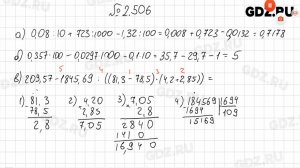 №2.506
GDZ.RU
а) 0,08 · 10 + 723 : 1000 - 1,32 : 100 = 0,008 + 0,723 - 0,0132 = 0,7178
б) 0,357 · 100 - 0,0297 · 1000 - 0,1 · 10 = 35,7 - 29,7 - 1 = 5
5 4 1 3 2
в) 203,57 - 1845,69 : ((81,3 - 78,5) · (4,2 + 2,85)) =
1) 81,3 2) 4,20 3) 7,05 4) 184569 | 1694
78,5 2,85 2,8 1694 109
2,8 7,05 2840 15169
1410
16940
GDZ.RU